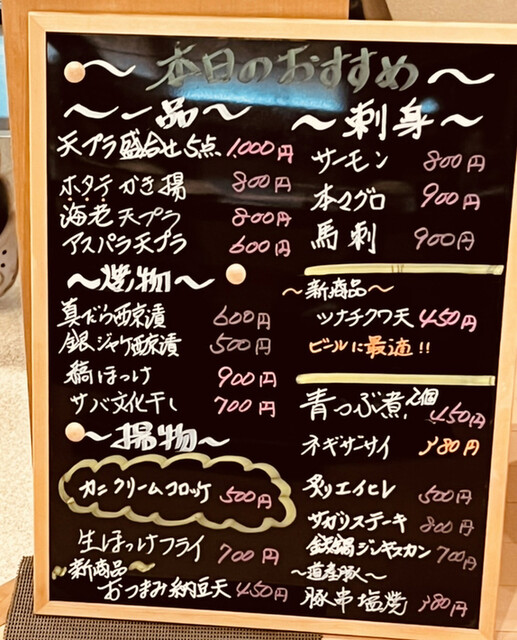 ～本日のおすすめ～
～一品～
天プラ盛合せ5点 1,000円
ホタテかき揚 800円
海老天プラ 800円
アスパラ天プラ 600円
～焼物～
真だら西京漬 600円
銀ジャケ西京漬 500円
縞ほっけ 900円
サバ文化干し 700円
～揚物～
カニクリームコロッケ 500円
生ほっけフライ 700円
～新商品～
おつまみ納豆天 450円
～刺身～
サーモン 800円
本マグロ 900円
馬刺 900円
～新商品～
ツナチクワ天 450円
ビールに最適!!
青つぶ煮 2個 450円
ネギザーサイ 380円
炙りエイヒレ 500円
サガリステーキ 800円
鉄鍋ジンギスカン 700円
～道産豚～
豚串塩焼 380円